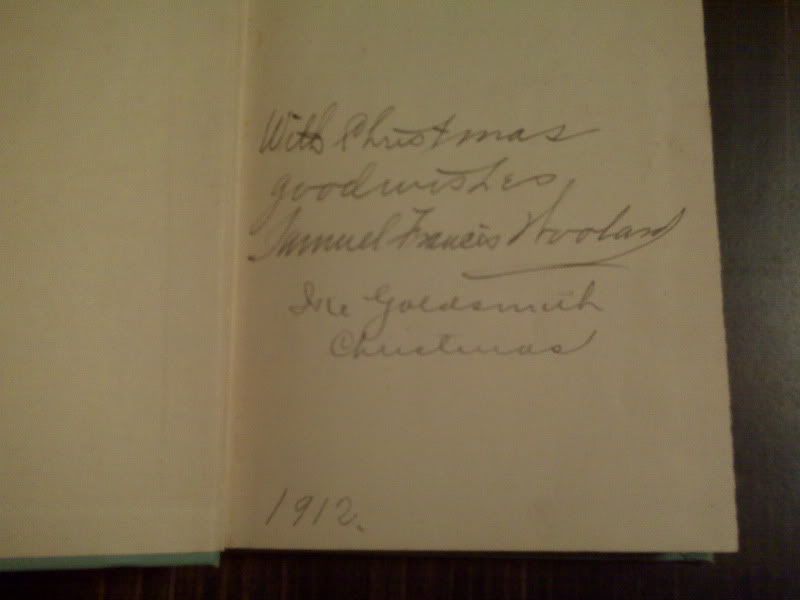 With Christmas
goodwishes
Samuel Francis Woolard
Ike Goldsmith
Christmas
1912.